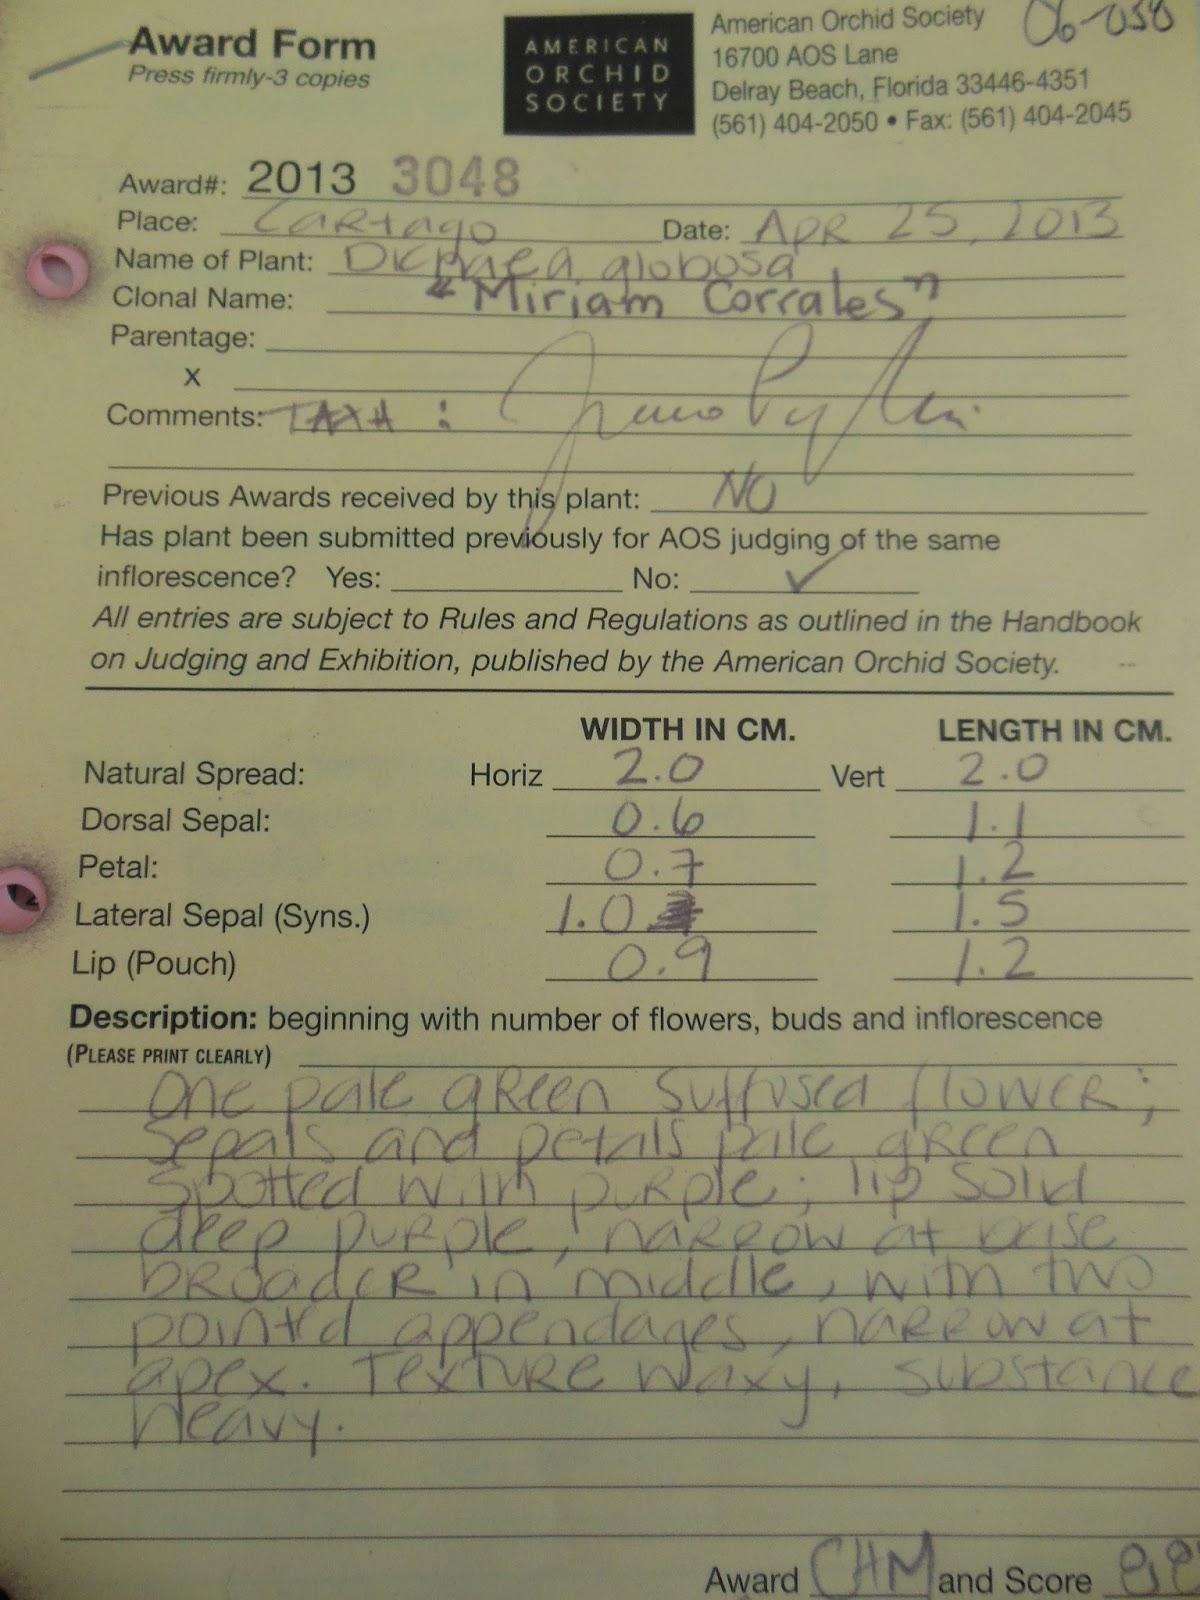 Award Form
Press firmly-3 copies
AMERICAN
ORCHID
SOCIETY
American Orchid Society
16700 AOS Lane
Delray Beach, Florida 33446-4351
(561) 404-2050 • Fax: (561) 404-2045
Award#: 2013 3048
Place: Cartago Date: APR 25, 2013
Name of Plant: Dichaea globosa
Clonal Name: "Miriam Corrales"
Parentage:
X
Comments: TAXA :
Previous Awards received by this plant: NO
Has plant been submitted previously for AOS judging of the same
inflorescence? Yes: No: ✓
All entries are subject to Rules and Regulations as outlined in the Handbook
on Judging and Exhibition, published by the American Orchid Society.
WIDTH IN CM. LENGTH IN CM.
Natural Spread: Horiz 2.0 Vert 2.0
Dorsal Sepal: 0.6 1.1
Petal: 0.7 1.2
Lateral Sepal (Syns.) 1.0 1.5
Lip (Pouch) 0.9 1.2
Description: beginning with number of flowers, buds and inflorescence
(PLEASE PRINT CLEARLY)
One pale green suffused flower;
sepals and petals pale green
spotted with purple; lip solid
deep purple, narrow at base
broader in middle, with two
point'd appendages, narrow at
apex. Texture waxy, substance
heavy.
Award CHM and Score